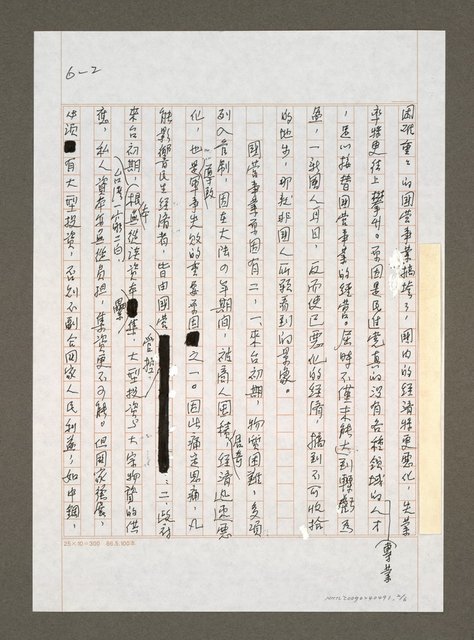 6-2
困難重重的國營事業搞垮了,國內的經濟將更惡化,失業
率將更往上攀升。原因是民進黨真的沒有各種領域的人才(專業
),足以接替國營事業的經營。屆時不僅未能達到轉虧為
盈,一新國人耳目,反而使已惡化的經濟,搞到不可收拾
的地步,那就非國人所願看到的景象。
國營事業原因有二,一來台初期,物資困難,多項
列入管制,因在大陸的年期間,被商人囤積居奇,經濟迅速惡
化,也是軍事失敗的重要原因之一。因此痛定思痛,凡
能影響民生經濟者,皆由國營管控;二政府
來台初期,台灣一窮二白,根本無從談資本累集,大型投資與大宗物資的供
應,私人資本無從負擔,集資更不可能。但國家發展,
必須有大型投資,否則不副合國家人民利益,如中鋼,
25×10=300 86.5.100本
NMTL20090240491 2/6